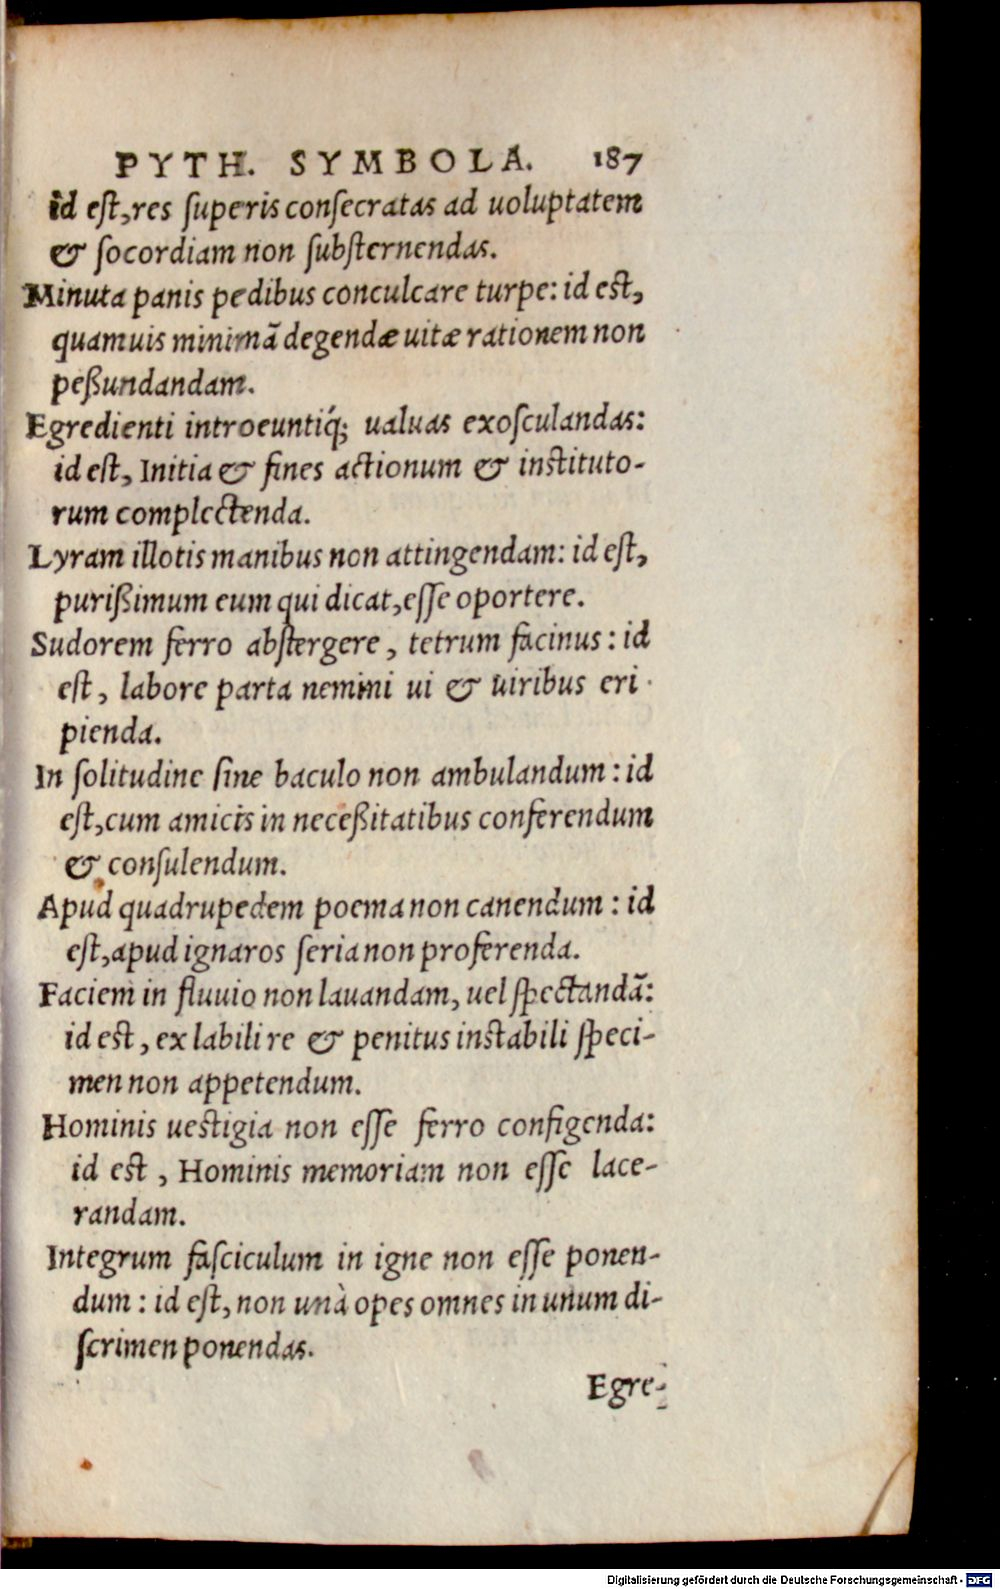 PYTH. SYMBOLA. 187
id est, res superis consecratas ad uoluptatem
& socordiam non substernendas.
Minuta panis pedibus conculcare turpe: id est,
quamuis minimã degendæ uitæ rationem non
peßundandam.
Egredienti introeuntiq́; ualuas exosculandas:
id est, Initia & fines actionum & instituto-
rum complectenda.
Lyram illotis manibus non attingendam: id est,
purißimum eum qui dicat, esse oportere.
Sudorem ferro abstergere, tetrum facinus: id
est, labore parta nemini ui & uiribus eri-
pienda.
In solitudine sine baculo non ambulandum: id
est, cum amicis in neceßitatibus conferendum
& consulendum.
Apud quadrupedem poema non canendum: id
est, apud ignaros seria non proferenda.
Faciem in fluuio non lauandam, uel spectandã:
id est, ex labili re & penitus instabili speci-
men non appetendum.
Hominis uestigia non esse ferro configenda:
id est, Hominis memoriam non esse lace-
randam.
Integrum fasciculum in igne non esse ponen-
dum: id est, non unà opes omnes in unum di-
scrimen ponendas.
Egre-
Digitalisierung gefördert durch die Deutsche Forschungsgemeinschaft - DFG